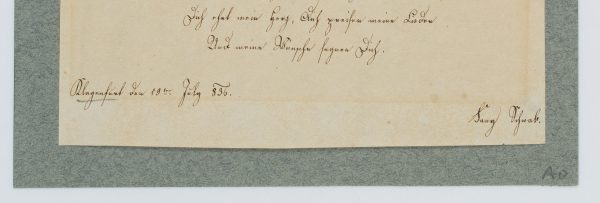 Dich ehrt mein Herz, Dich preisen meine Lieder
Und meine Wünsche segnen Dich.
Klagenfurt den 19t. July 836.
Schwab.
AD